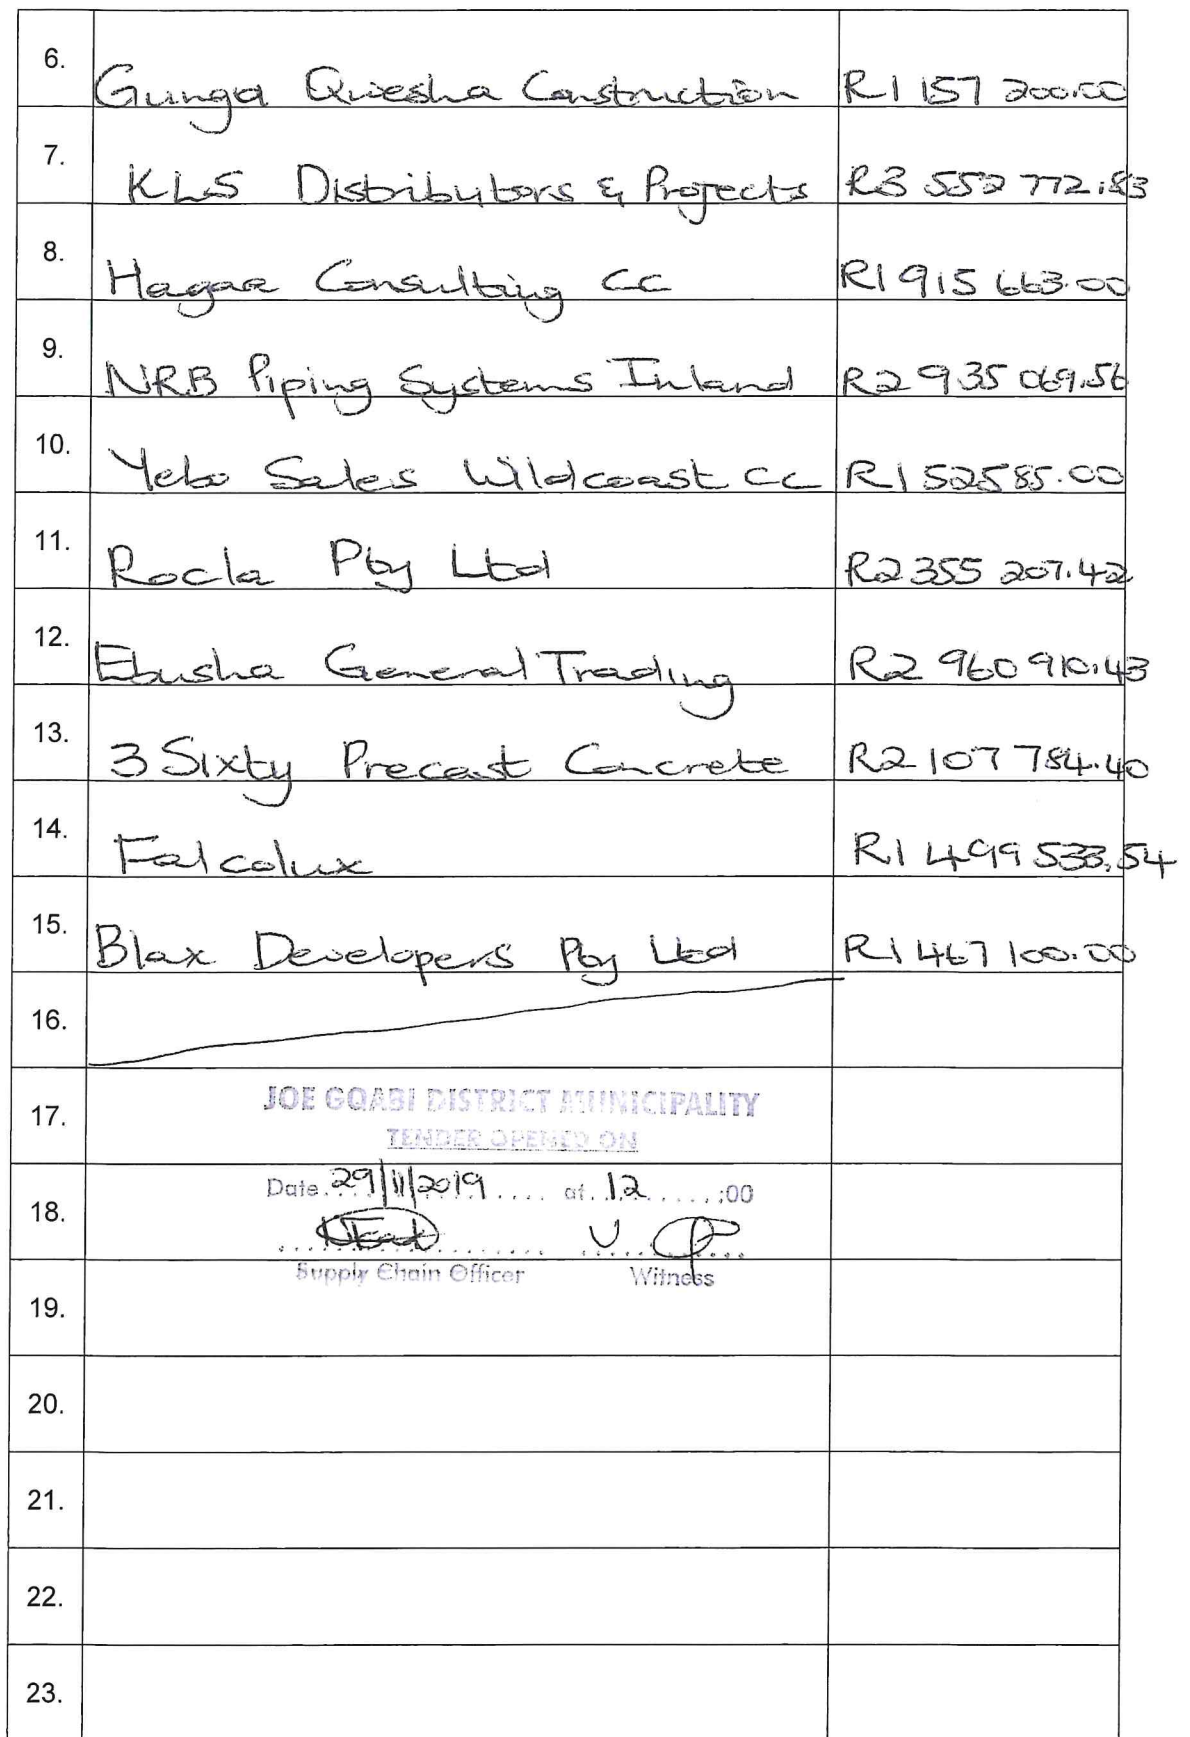 6. Gunga Qwesha Construction R1 157 200.00
7. KLS Distributors & Projects R3 552 772.83
8. Hagar Consulting CC R1 915 663.00
9. NRB Piping Systems Inland R2 935 069.56
10. Yebo Sales Wildcoast CC R1 52585.00
11. Rocla Pty Ltd R2 355 207.42
12. Ebusha General Trading R2 960 910.43
13. 3 Sixty Precast Concrete R2 107 784.40
14. Falcolux R1 499 533.54
15. Blax Developers Pty Ltd R1 467 100.00
16.
17. JOE GQABI DISTRICT MUNICIPALITY
TENDER OPENED ON
Date....29/11/2019.... at..12......:00
18.
Supply Chain Officer Witness
19.
20.
21.
22.
23.